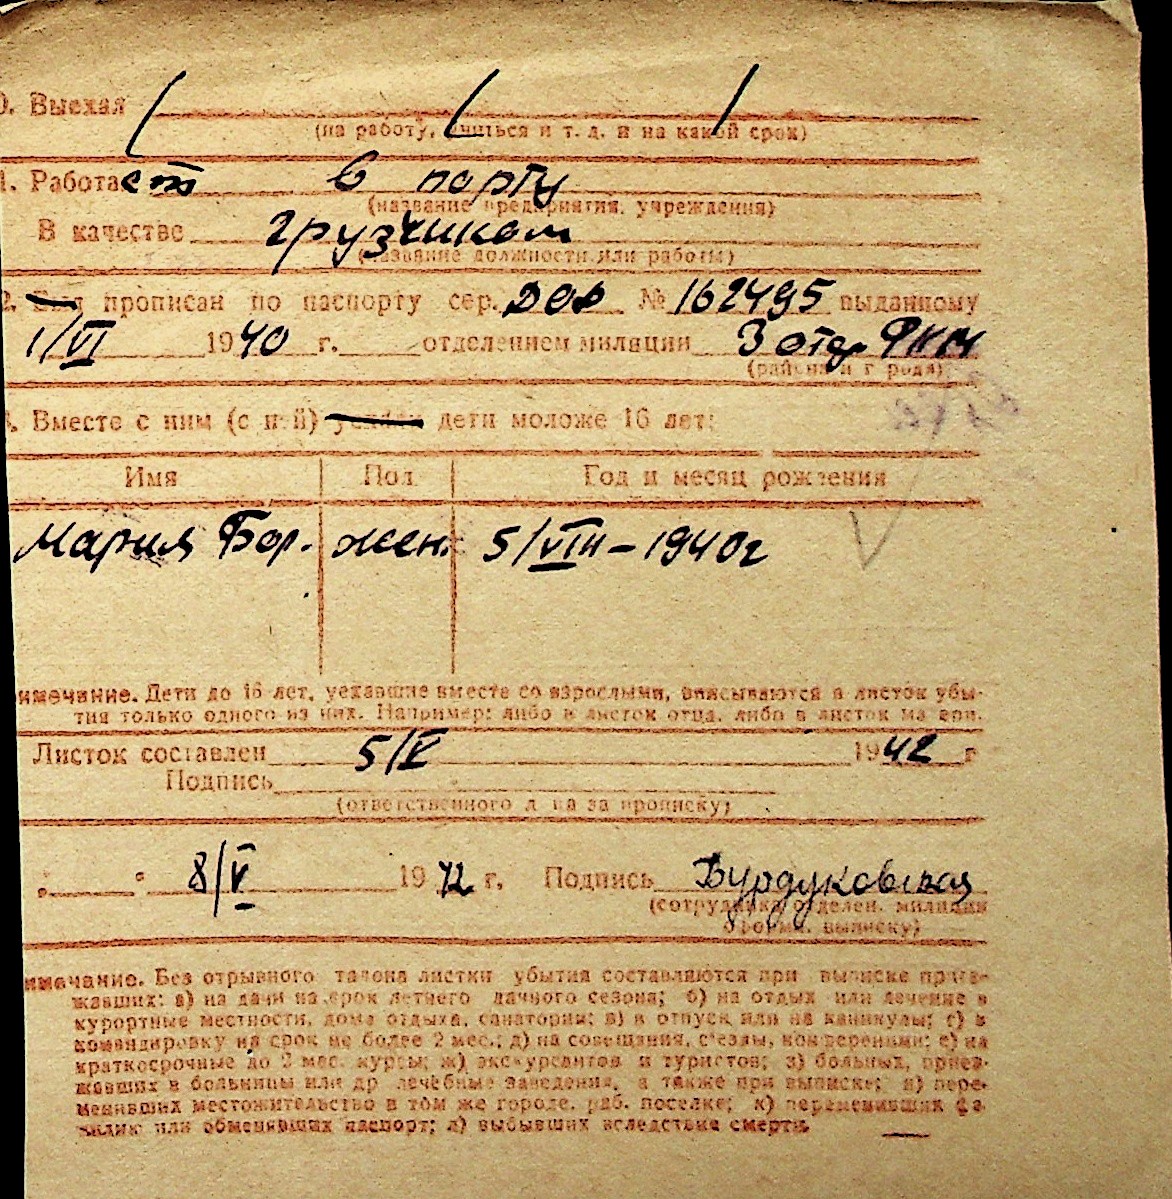 0. Выехал
(на работу, учиться и т. д. и на какой срок)
1. Работает в порту
(название предприятия, учреждения)
В качестве грузчиком
(название должности или работы)
2. Был прописан по паспорту сер. № 162495 выданному
1/VI 1940 г. отделением милиции 3 отд. РКМ
(района и города)
. Вместе с ним (с ней) уехали дети моложе 16 лет:
Имя Пол Год и месяц рождения
Мария Бор. жен. 5/VIII – 1940 г
имечание. Дети до 16 лет, уехавшие вместе со взрослыми, вписываются в листок убы-
тия только одного из них. Например: либо в листок отца, либо в листок матери.
Листок составлен 5/V 1942 г
Подпись
(ответственного лица за прописку)
" " 8/V 1942 г. Подпись Бурдуковская
(сотрудника отделен. милиции
оформ. выписку)
имечание. Без отрывного талона листки убытия составляются при выписке приез-
жавших: а) на дачи на срок летнего дачного сезона; б) на отдых или лечение в
курортные местности, дома отдыха, санатории; в) в отпуск или на каникулы; г) в
командировку на срок не более 2 мес.; д) на совещания, съезды, конференции; е) на
краткосрочные до 2 мес. курсы; ж) экскурсантов и туристов; з) больных, приез-
жавших в больницы или др лечебные заведения, а также при выписке; и) пере-
менивших местожительство в том же городе, раб. поселке; к) переменивших фа-
милию или обменявших паспорт; л) выбывших вследствие смерти.